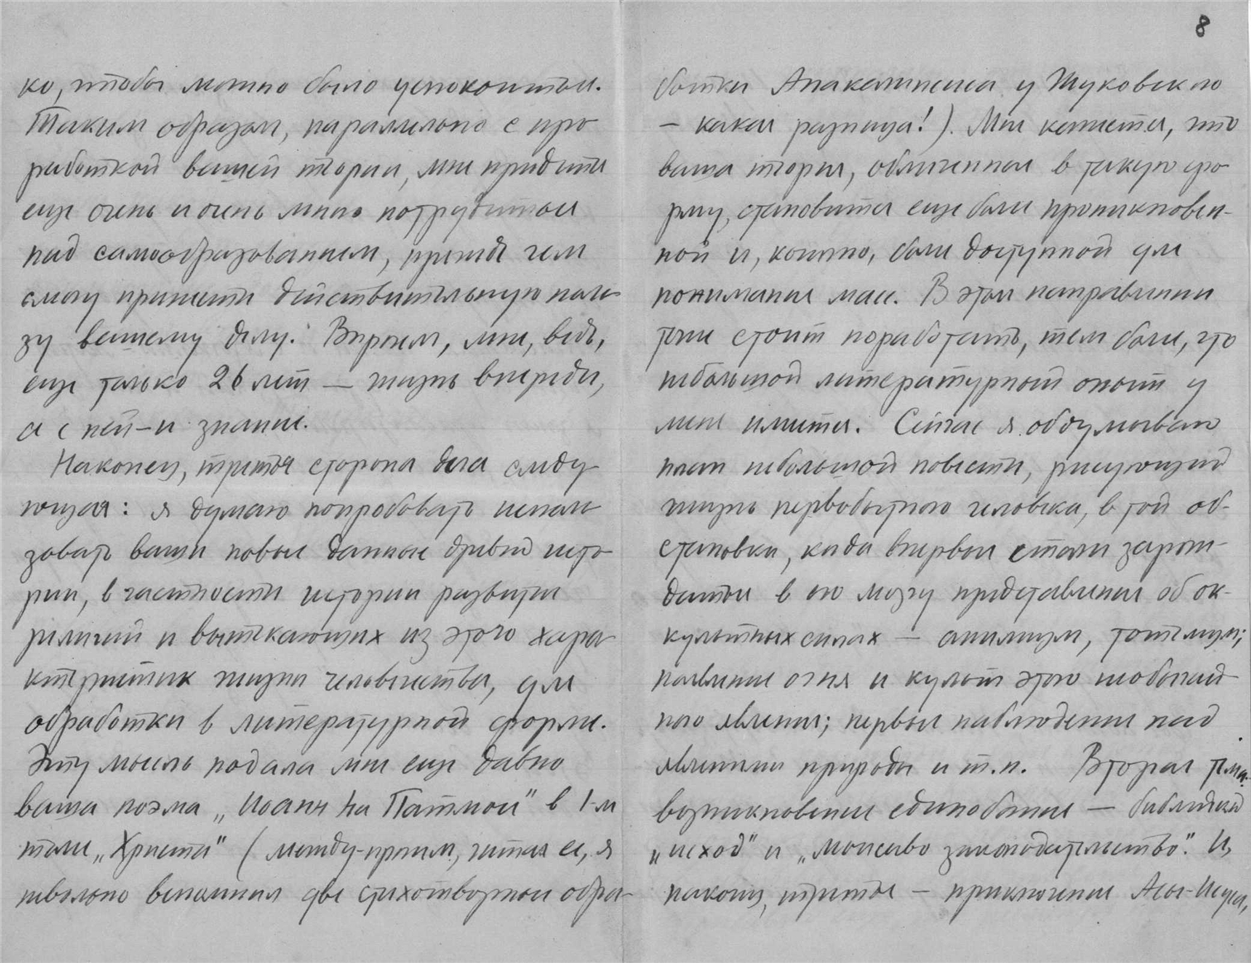 ко, чтобы можно было успокоиться.
Таким образом, параллельно с про-
работкой вашей теории, мне придется
еще очень и очень много потрудиться
над самообразованием, прежде чем
смогу принести действительную поль-
зу вашему делу. Впрочем, мне, ведь,
еще только 26 лет — жизнь впереди,
а с ней – и знание.
Наконец, третья сторона дела следу-
ющая: я думаю попробовать исполь-
зовать ваши новые данные древней исто-
рии, в частности истории развития
религий и вытекающих из этого хара-
ктеристик жизни человечества, для
обработки в литературной форме.
Эту мысль подала мне еще давно
ваша поэма „Иоанн на Патмосе" в 1-м
томе „Христа" (между-прочим, читая ее, я
невольно вспомнил две стихотворные обра-
8
ботки Апокалипсиса у Жуковского
— какая разница!). Мне кажется, что
ваша теория, облеченная в такую фо-
рму, становится еще более проникновен-
ной и, конечно, более доступной для
понимания масс. В этом направлении
тоже стоит поработать, тем более, что
небольшой литературный опыт у
меня имеется. Сейчас я обдумываю
план небольшой повести, рисующей
жизнь первобытного человека, в той об-
становке, когда впервые стали зарож-
даться в его мозгу представления об ок-
культных силах — анимизм, тотемизм;
появление огня и культ этого необычай-
ного явления; первые наблюдения над
явлениями природы и т.п. Вторая тема:
возникновение единобожия — библейский
„исход" и „моисеево законодательство". И,
наконец, третья — приключения Асы-Иисуса,